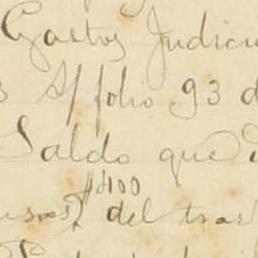 Gastos Judici
S/ folio 93 d
Saldo que
$400
del tras